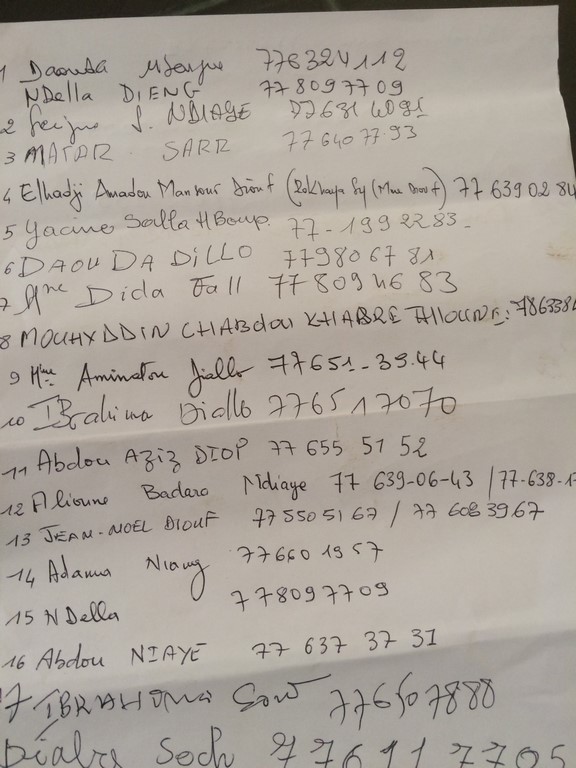 1 Daouda Mbengue 776324112
NDella DIENG 778097709
2 Serigne S. NDIAYE 77631 4091
3 MATAR SARR 77 640 77.93
4 Elhadji Amadou Mansour Diouf (Rokhaya Sy (Mme Diouf) 77 639 02 84
5 Yacine Salla MBoup. 77-199 22 83-
6 DAOUDA DiLLO 77980 67 81
7 Mme Dida Fall 77 809 46 83
8 MOUHYDDIN CHABdou KHABRE Alloune: 786338
9 Mme Aminatou Diallo 77651-39.44
10 IBrahima Diallo 776517070
11 Abdou AZiZ DIOP 77 655 51 52
12 Alioune Badara Ndiaye 77 639-06-43 / 77-638-1
13 JEAN-NOEL DIOUF 77 550 51 67 / 77 608 39 67
14 Adama Niang 77660 1957
15 NDella 778097709
16 Abdou NIAYE 77 637 37 31
17 IBRAHIMA Sow 776507888
Diabre Soch 776117705